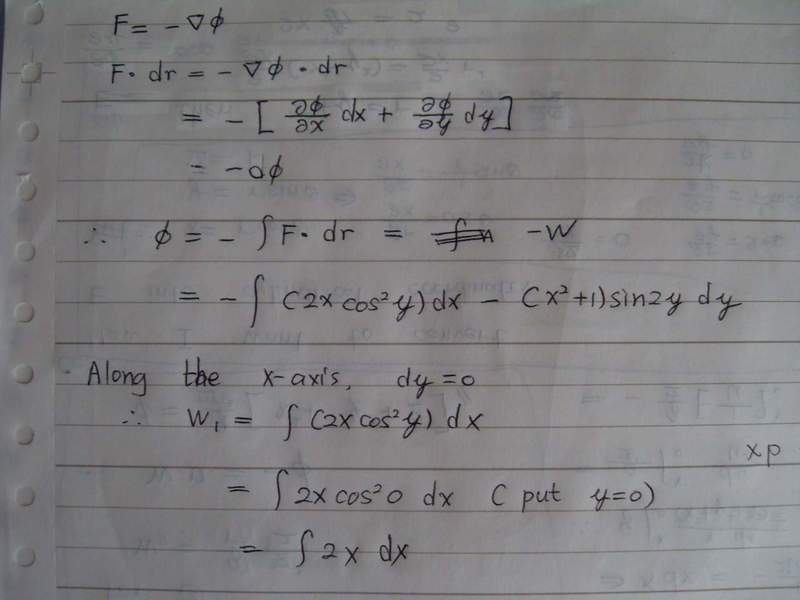 F = - ∇φ
F · dr = - ∇φ · dr
= - [ ∂φ/∂x dx + ∂φ/∂y dy ]
= - dφ
∴ φ = - ∫ F · dr = -W
= - ∫ (2x cos²y) dx - (x²+1) sin2y dy
Along the x-axis, dy = 0
∴ W₁ = ∫ (2x cos²y) dx
= ∫ 2x cos²0 dx ( put y=0)
= ∫ 2x dx